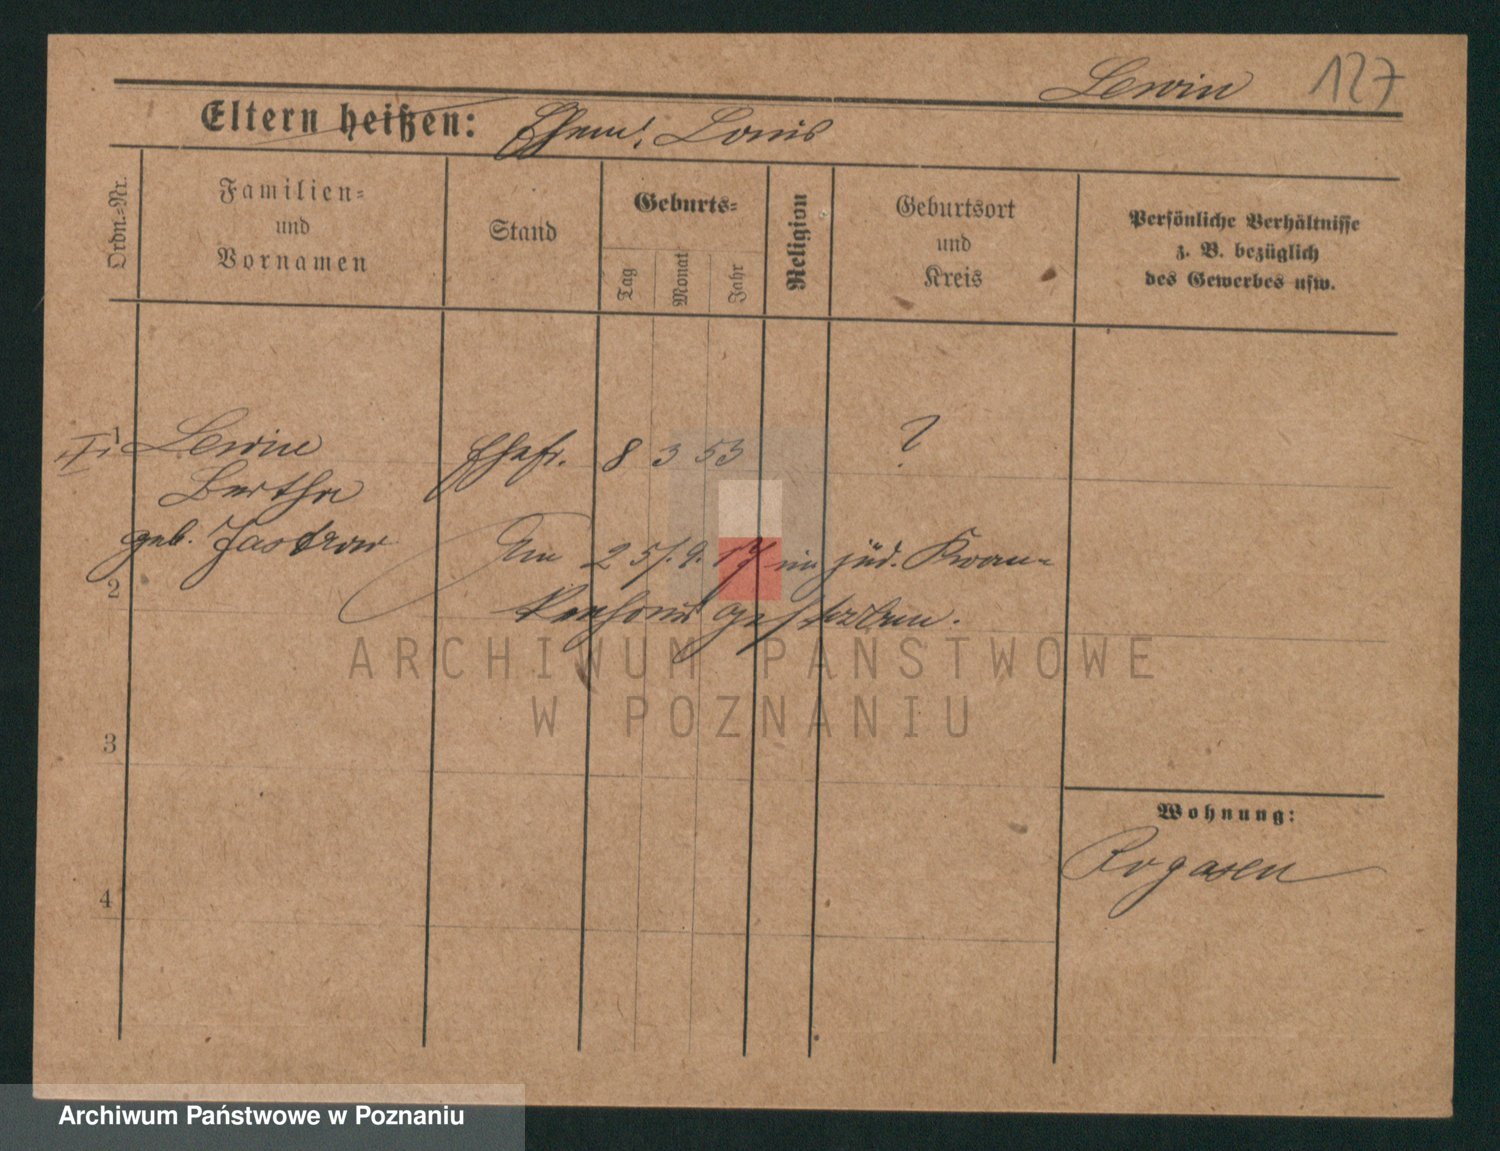 Lewin 127
Eltern heißen: Ehem. Louis
Ordn.-Nr.
Familien-
und
Vornamen
Stand
Geburts-
Tag
Monat
Jahr
Religion
Geburtsort
und
Kreis
Persönliche Verhältnisse
z. B. bezüglich
des Gewerbes usw.
1 Lewin Ehefr. 8 3 53 ?
Bertha
geb. Jastrow
Am 25/.9. 17 im jüd. Kran-
2
kenhaus gestorben.
ARCHIWUM PAŃSTWOWE
W POZNANIU
3
Wohnung:
Rogasen
4
Archiwum Państwowe w Poznaniu